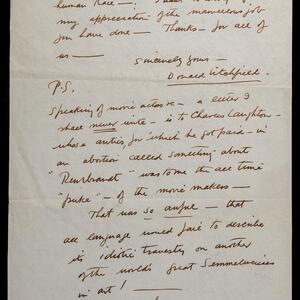 human race —
my appreciation of the marvelous job
you have done — Thanks — for all of
us —
Sincerely Yours —
Donald Litchfield.
P.S.
Speaking of movie actors — a letter I
shall never write — is to Charles Laughton —
whose antics, for which he got paid — in
an abortion called something about
"Rembrandt" was to me the all time
"puke" — of the movie makers —
That was so awful — that
all language would fail to describe
its idiotic travesty on another
of the world's great
in art!